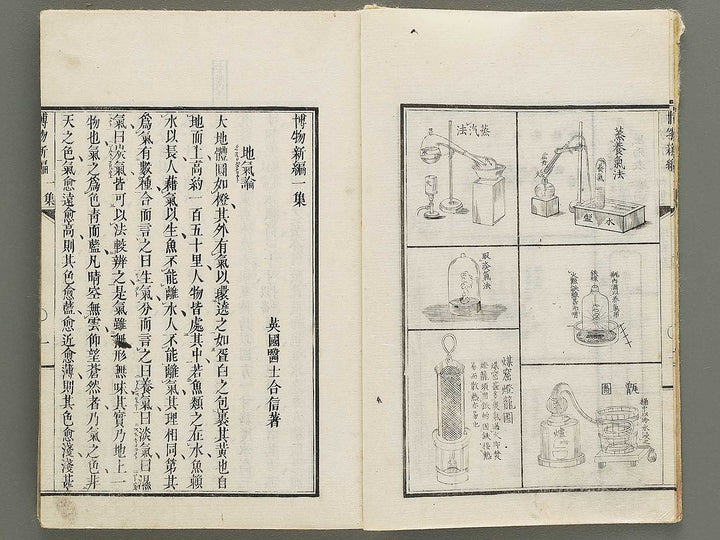 蒸養氣法
養氣
水盤
蒸汽法
鐵線
取淡氣法
甑圖
桶中以冷水浸之
爐
煤窰燈籠圖
博物新編一集
英國醫士合信著
地氣論
大地體圓如橙其外有氣以環遶之如蛋白之包裹其黃也自
地而上高約一百五十里人物皆處其中若魚類之在水魚賴
水以長人藉氣以生魚不能離水人不能離氣其理相同第其
爲氣有數種合而言之曰生氣分而言之曰養氣曰淡氣曰濕
氣曰炭氣皆可以法較辨之是氣雖無形無味其實乃地上一
物也氣之爲色青而藍凡晴空無雲仰望蒼然者乃氣之色非
天之色氣愈遠愈高則其色愈藍愈近愈薄則其色愈淺淺甚
博物新編 一集